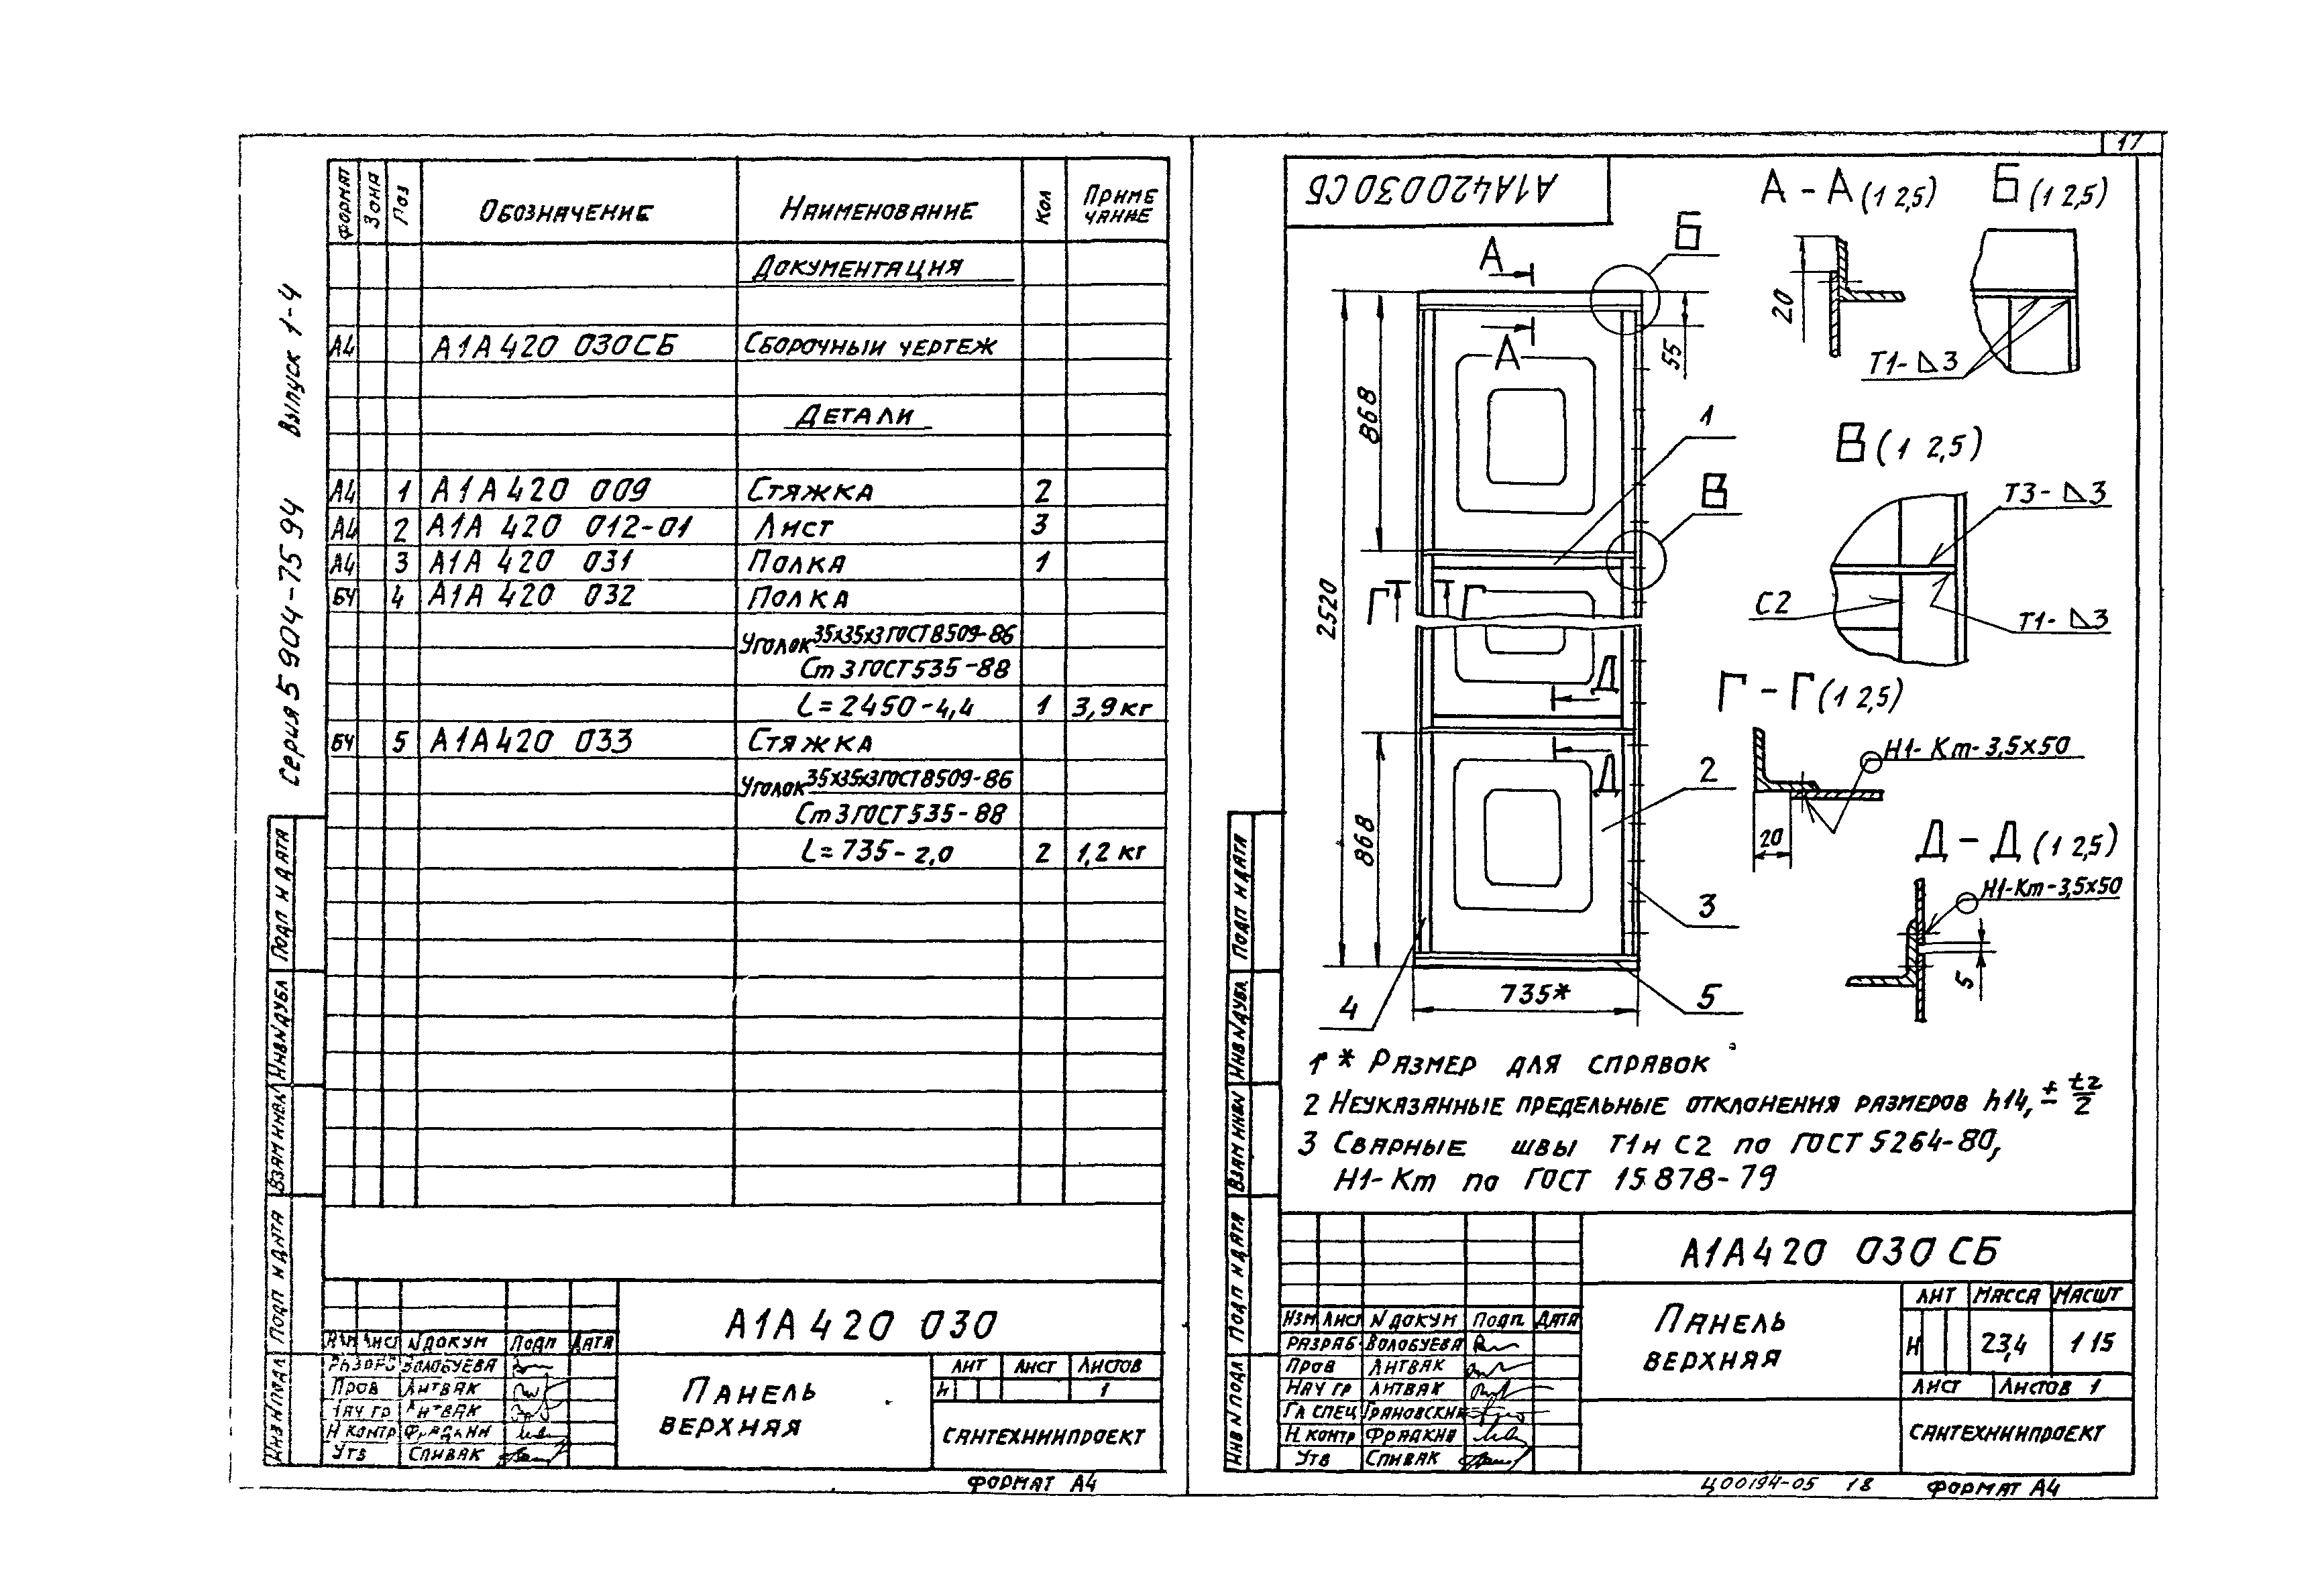 17
Серия 5 904-75 94 Выпуск 1-4
Формат Зона Поз Обозначение Наименование Кол Приме чание
Документация
А4 А1А 420 030СБ Сборочный чертеж
Детали
А4 1 А1А 420 009 Стяжка 2
А4 2 А1А 420 012-01 Лист 3
А4 3 А1А 420 031 Полка 1
БЧ 4 А1А 420 032 Полка
Уголок 35х35х3 ГОСТ 8509-86
Ст 3 ГОСТ 535-88
L=2450-4,4 1 3,9 кг
БЧ 5 А1А 420 033 Стяжка
Уголок 35х35х3 ГОСТ 8509-86
Ст 3 ГОСТ 535-88
L=735-2,0 2 1,2 кг
Подп и дата
Инв N дубл
Взам инв N
Подп и дата
Инв N подл
А1А 420 030
Изм Лист N докум Подп Дата
Разраб Волобуева
Пров Литвак
Нач гр Литвак
Н контр Фрадкин
Утв Спивак
Панель
верхняя
Лит Лист Листов
И 1
Сантехниипроект
Формат А4
А1А420030СБ
А
А
Б
В
Г Г
Д
Д
2520
868
868
55
735*
1
2
3
4
5
А - А (1 2,5)
20
Б (1 2,5)
Т1-◺3
В (1 2,5)
Т3-◺3
С2
Т1-◺3
Г - Г (1 2,5)
Н1-Кт-3,5х50
20
Д - Д (1 2,5)
Н1-Кт-3,5х50
5
1 * Размер для справок
2 Неуказанные предельные отклонения размеров h14, ± t2/2
3 Сварные швы Т1 и С2 по ГОСТ 5264-80,
Н1-Кт по ГОСТ 15.878-79
Подп и дата
Инв N дубл
Взам инв N
Подп и дата
Инв N подл
А1А 420 030 СБ
Изм Лист N докум Подп Дата
Разраб Волобуева
Пров Литвак
Нач гр Литвак
Гл спец Грановский
Н контр Фрадкин
Утв Спивак
Панель
верхняя
Лит Масса Масшт
И 23,4 1 15
Лист Листов 1
Сантехниипроект
Ц00194-05 18 Формат А4